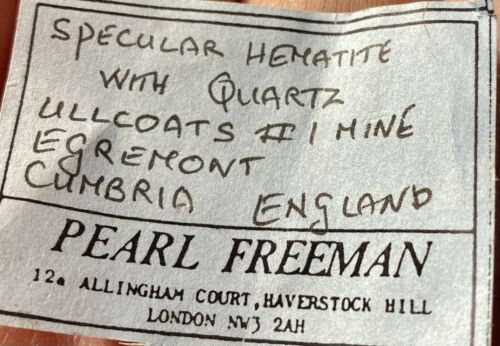 SPECULAR HEMATITE
WITH QUARTZ
ULLCOATS #1 MINE
EGREMONT
CUMBRIA ENGLAND
PEARL FREEMAN
12a ALLINGHAM COURT, HAVERSTOCK HILL
LONDON NW3 2AH